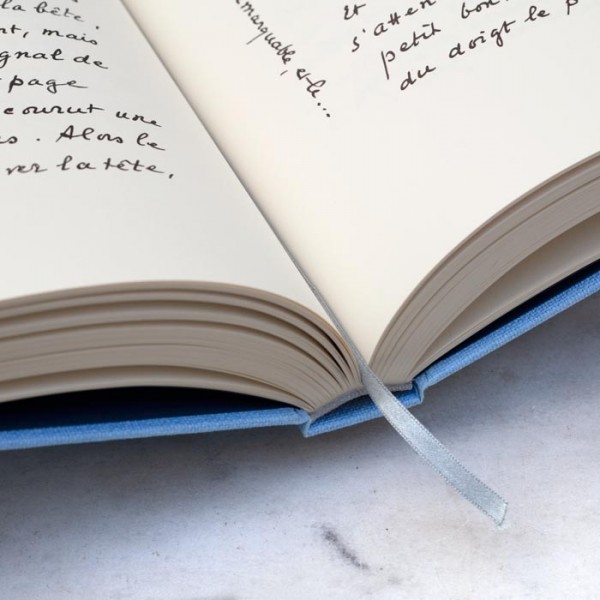 la bête.
nt, mais
gnal de
page
ecourut une
s. Alors le
ver la tête,
marquable, et le...
Et
s'atten
petit bon
du doigt le p